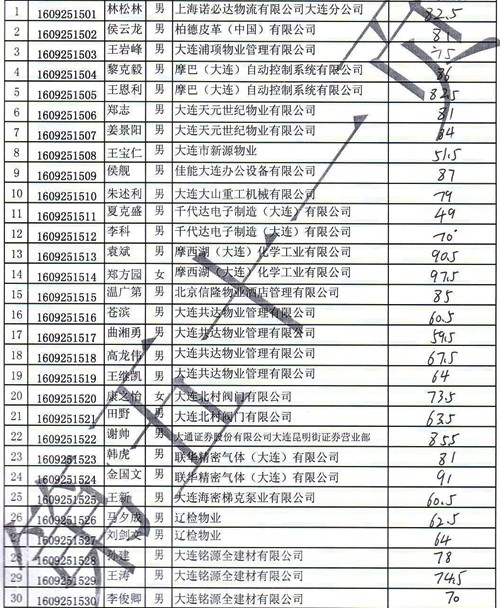 1 1609251501 林松林 男 上海诺必达物流有限公司大连分公司 82.5
2 1609251502 侯云龙 男 柏德皮革（中国）有限公司 81
3 1609251503 王岩峰 男 大连浦项物业管理有限公司 75
4 1609251504 黎克毅 男 摩巴（大连）自动控制系统有限公司 86
5 1609251505 王恩利 男 摩巴（大连）自动控制系统有限公司 82.5
6 1609251506 郑志 男 大连天元世纪物业有限公司 81
7 1609251507 姜景阳 男 大连天元世纪物业有限公司 84
8 1609251508 王宝仁 男 大连市新源物业 51.5
9 1609251509 侯舰 男 佳能大连办公设备有限公司 87
10 1609251510 朱述利 男 大连大山重工机械有限公司 79
11 1609251511 夏克盛 男 千代达电子制造（大连）有限公司 49
12 1609251512 李科 男 千代达电子制造（大连）有限公司 70
13 1609251513 袁斌 男 摩西湖（大连）化学工业有限公司 90.5
14 1609251514 郑方园 女 摩西湖（大连）化学工业有限公司 97.5
15 1609251515 温广第 男 北京信隆物业酒店管理有限公司 85
16 1609251516 苍滨 男 大连共达物业管理有限公司 60.5
17 1609251517 曲湘勇 男 大连共达物业管理有限公司 59.5
18 1609251518 高龙伟 男 大连共达物业管理有限公司 67.5
19 1609251519 王继凯 男 大连共达物业管理有限公司 64
20 1609251520 康之怡 女 大连北村阀门有限公司 73.5
21 1609251521 田野 男 大连北村阀门有限公司 63.5
22 1609251522 谢帅 男 大通证券股份有限公司大连昆明街证券营业部 85.5
23 1609251523 韩虎 男 联华精密气体（大连）有限公司 81
24 1609251524 金国文 男 联华精密气体（大连）有限公司 91
25 1609251525 王新 男 大连海密梯克泵业有限公司 60.5
26 1609251526 马夕成 男 辽检物业 62.5
27 1609251527 刘剑文 男 辽检物业 64
28 1609251528 孙建 男 大连铭源全建材有限公司 78
29 1609251529 王涛 男 大连铭源全建材有限公司 74.5
30 1609251530 李俊卿 男 大连铭源全建材有限公司 70